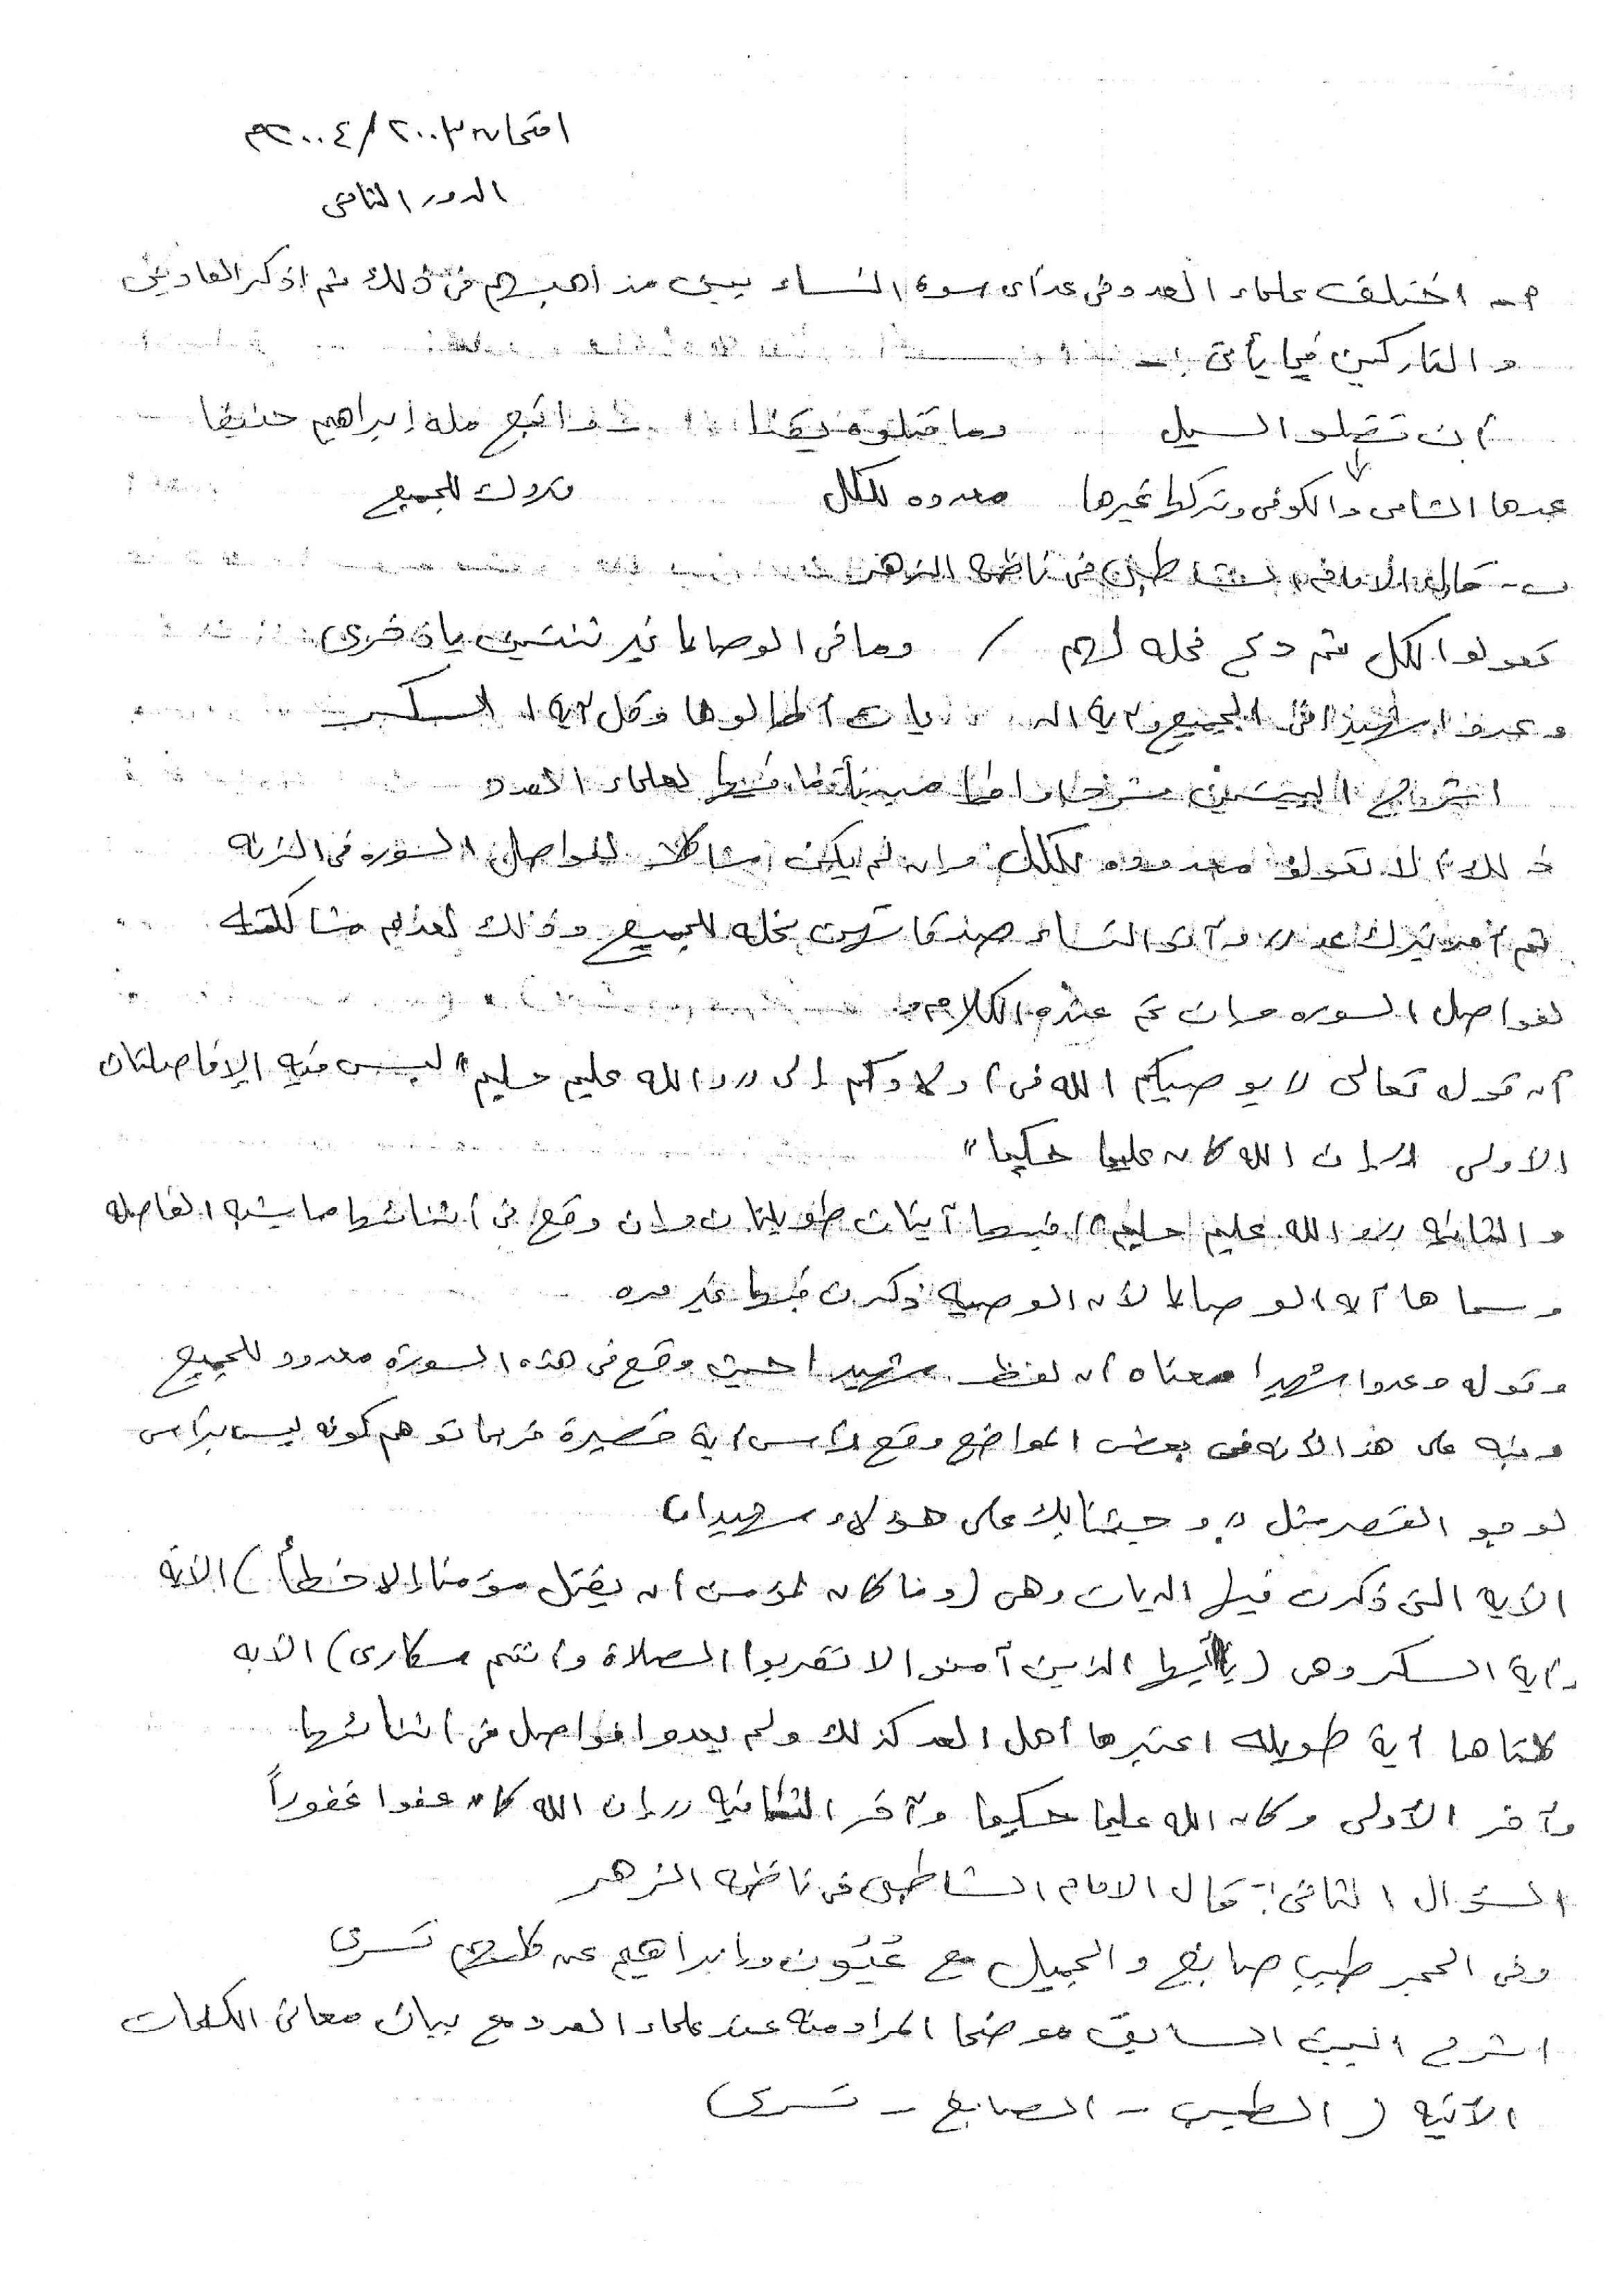 امتحان ٢٠٠٣ / ٢٠٠٤م
الدور الثانى
P - اختلف علماء العدد فى عد آى سورة النساء بين مذاهبهم فى ذلك ثم اذكر العادين
والتاركين فيما يأتى :-
أن تضلوا السبيل وما قتلوه يقينا واتبع ملة إبراهيم حنيفا
عدها الشامى والكوفى وتركها غيرها معدوده للكل متروك للجميع
ب - قال الامام الشاطبى فى ناظمه الزهر
تعولوا لكل ثم دع نحله لهم / وما فى الوصايا غير ثنتين يا ذخرى
وعدوا شهيدا فى الجميع وآية الديات أطالوها وقل آية السكر
اشرح البيتين شرحا وافيا مبينا ما فيها لعلماء العدد
ذلك ألا تعولوا معدوده للكل وان لم يكن مشاكلا لفواصل السورة فى الزنه
ثم أمر بترك عد " وآتوا النساء صدقاتهن نحله للجميع وذلك لعدم مشاكلته
لفواصل السوره وان تم عنده الكلام
أن قوله تعالى " يوصيكم الله فى أولادكم إلى " والله عليم حليم " ليس فيه إلا فاصلتان
الأولى " إن الله كان عليما حكيما "
والثانية " والله عليم حليم " فهما آيتان طويلتان وإن وقع فى أثنائها ما يشبه الفاصله
وسماها آية الوصايا لأن الوصيه ذكرت فيها غير مره
وقوله وعدوا شهيدا معناه أن لفظ شهيدا حيث وقع فى هذه السورة معدود للجميع
ونبه على هذا لأنه فى بعض المواضع وقع رأس آية قصيرة فربما توهم كونه ليس برأس
لوجود القصر مثل " وجئنا بك على هؤلاء شهيدا "
الآية التى ذكرت فيها الديات وهى (وما كان لمؤمن أن يقتل مؤمنا إلا خطأ) الآية
وآية السكر وهى (يا أيها الذين آمنوا لا تقربوا الصلاة وأنتم سكارى) الآيه
كلتاهما آية طويلة اعتبرها أهل العد كذلك ولم يعدوا فواصل فى أثنائها
وآخر الأولى وكان الله عليما حكيما وآخر الثانية " إن الله كان عفوا غفوراً
السؤال الثانى :- قال الامام الشاطبى فى ناظمه الزهر
وفى الحجر طيب صابغ والجميل مع عُيُون وإبراهيم عن كلهم تسرى
اشرح البيت السابق موضحا المراد منه عند علماء العدد مع بيان معانى الكلمات
الآتية ( الطيب - الصابغ - تسرى )